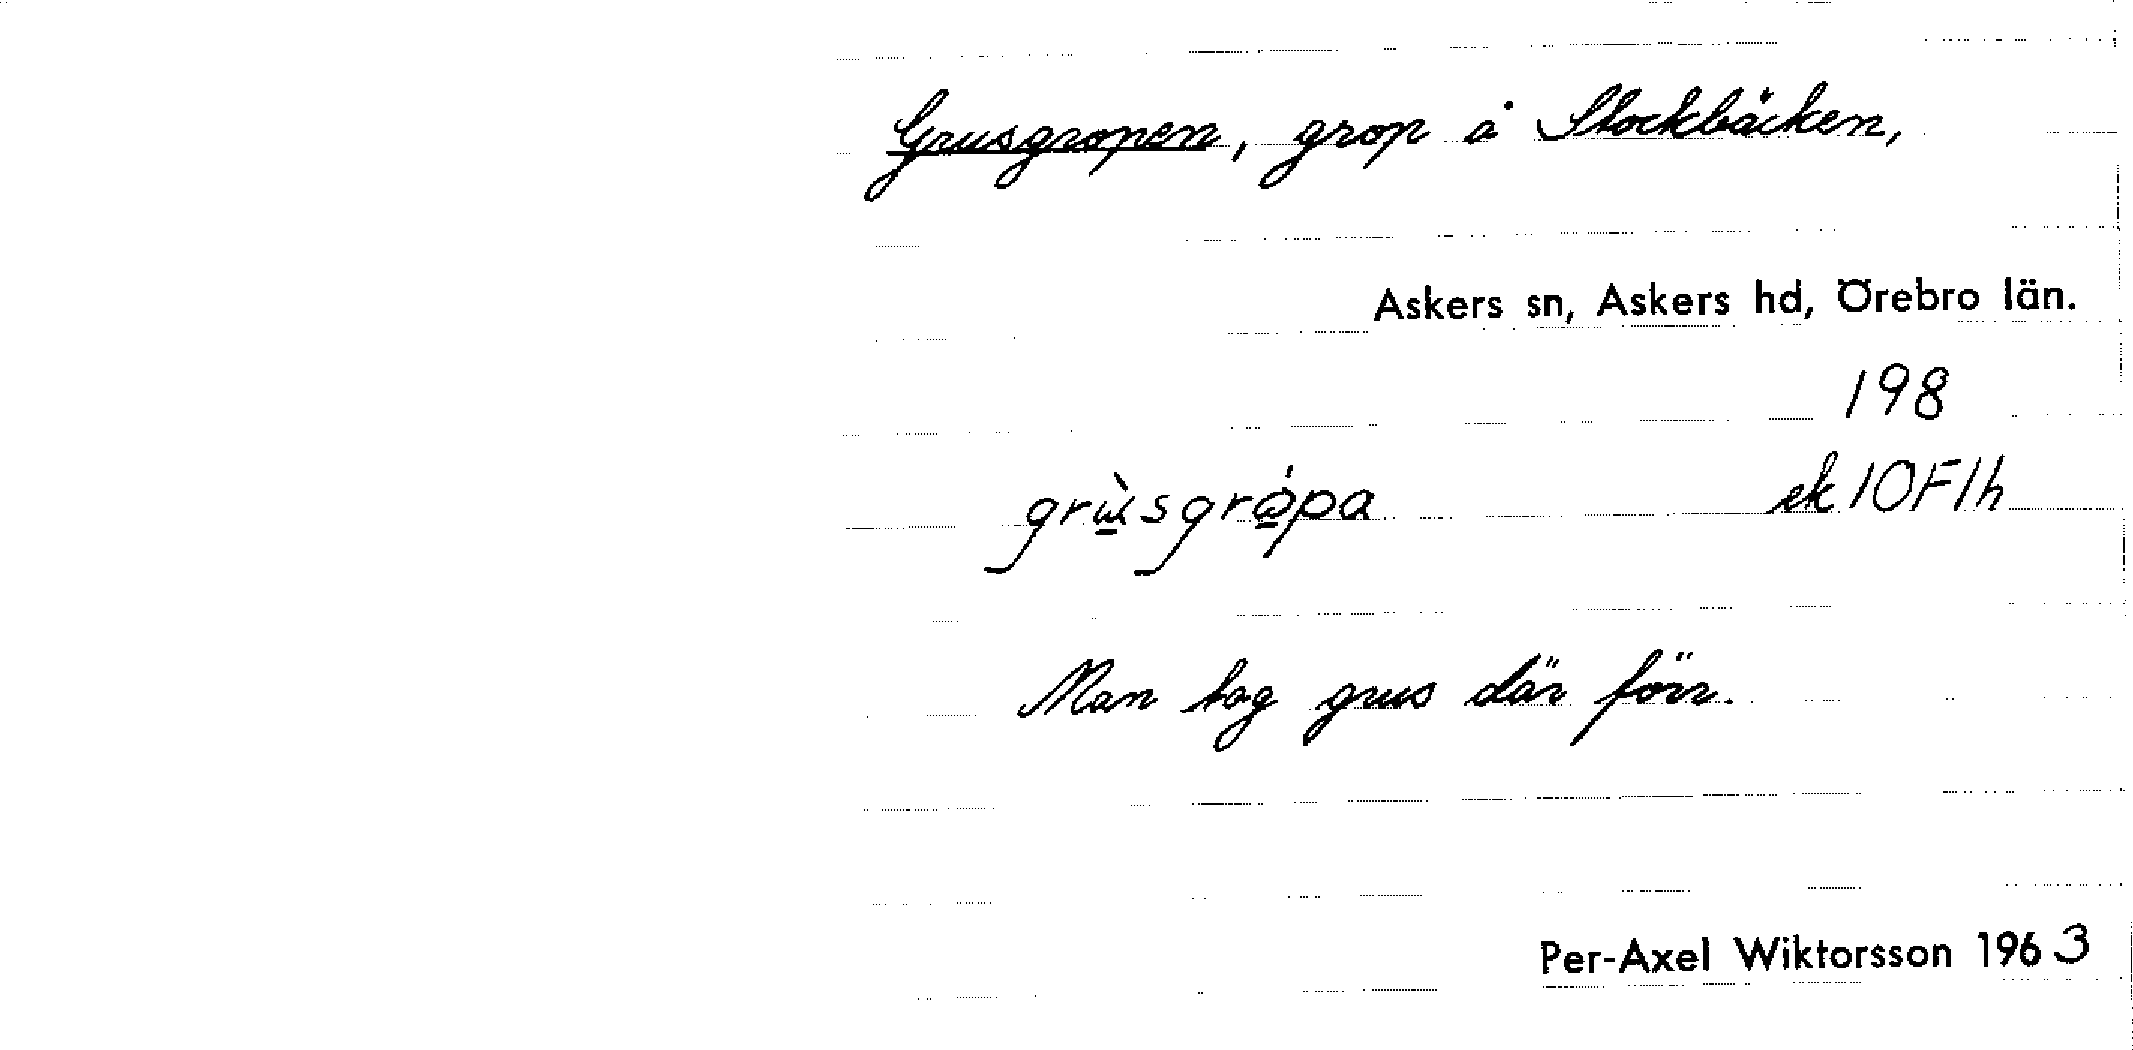 Grusgropen, grop å Stockbäcken,
Askers sn, Askers hd, Örebro län.
198
grùsgròpa ek 10F1h
Man tog grus där förr.
Per-Axel Wiktorsson 1963